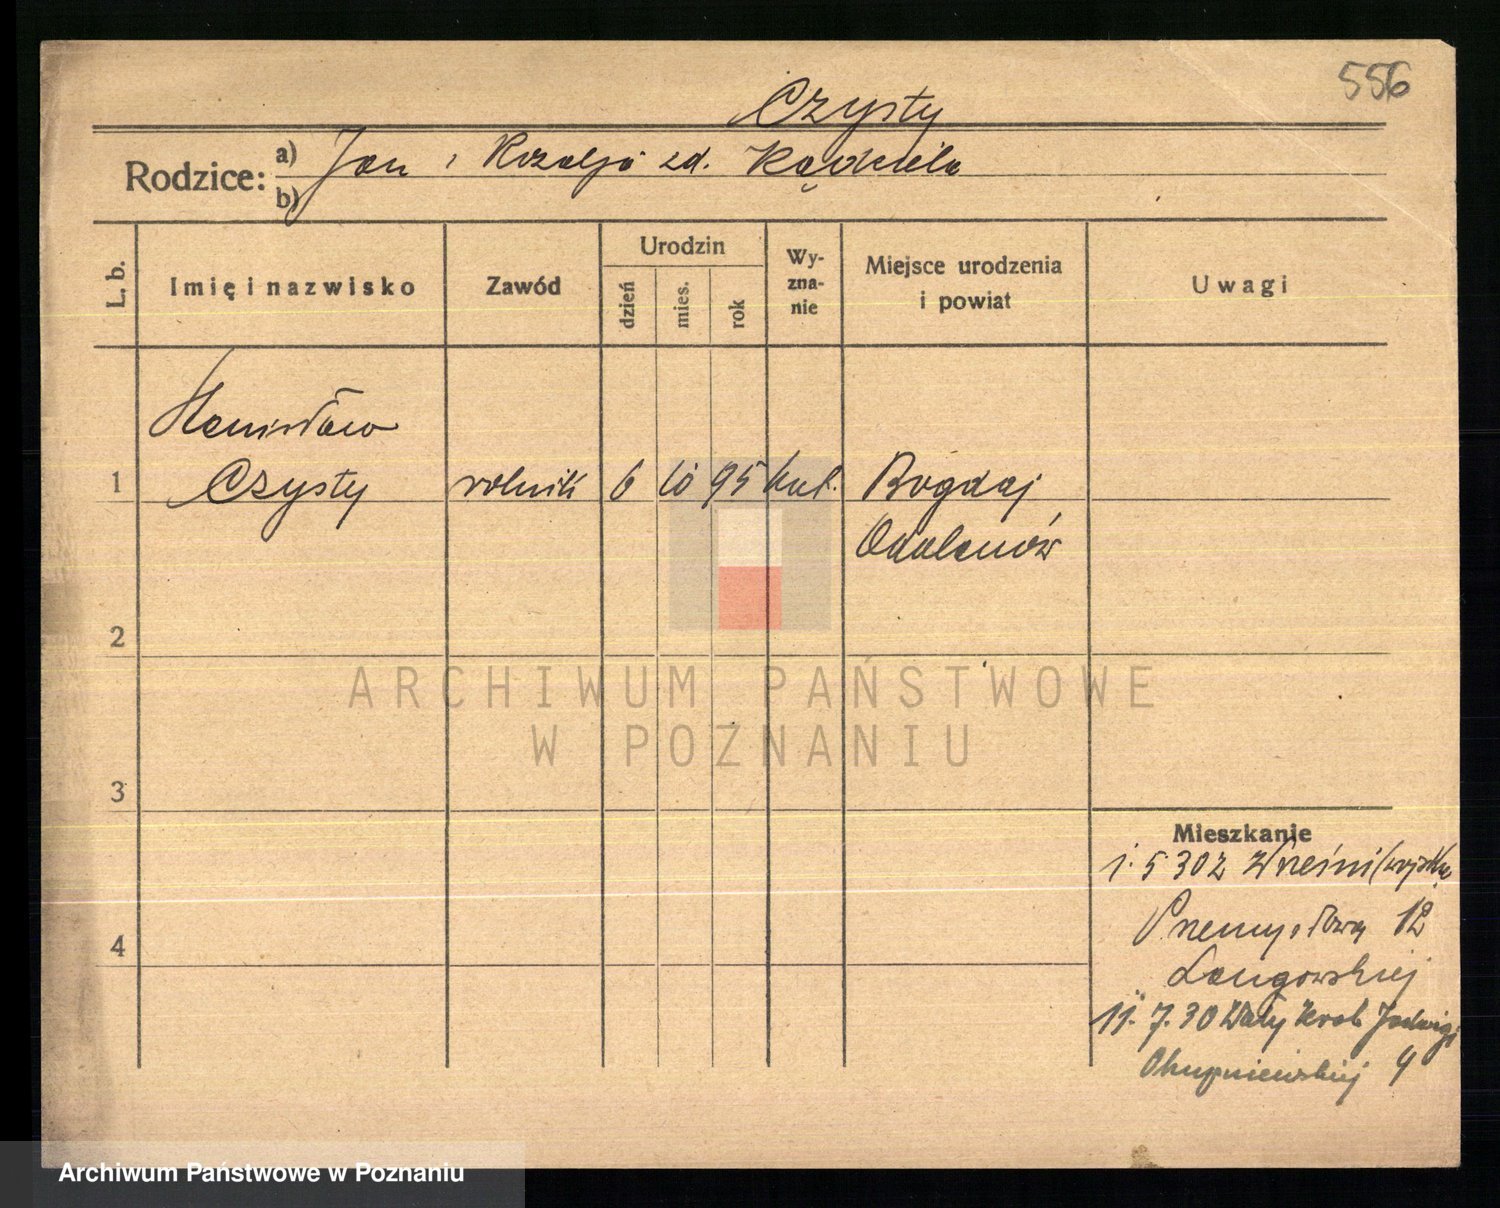 556
Czysty
Rodzice: a) Jan i Rozalja zd. Kądziela
b)
L. b.
Imię i nazwisko
Zawód
Urodzin
dzień
mies.
rok
Wy-
zna-
nie
Miejsce urodzenia
i powiat
Uwagi
Stanisław
1 Czysty rolnik 6 10 95 kat. Bogdaj
Odolanów
2
ARCHIWUM PAŃSTWOWE
W POZNANIU
3
Mieszkanie
1. 5 30 z Wrześni
4 Przemysłowa 12
Langowskiej
11. 7. 30 Wały Jadwigi
4
Archiwum Państwowe w Poznaniu